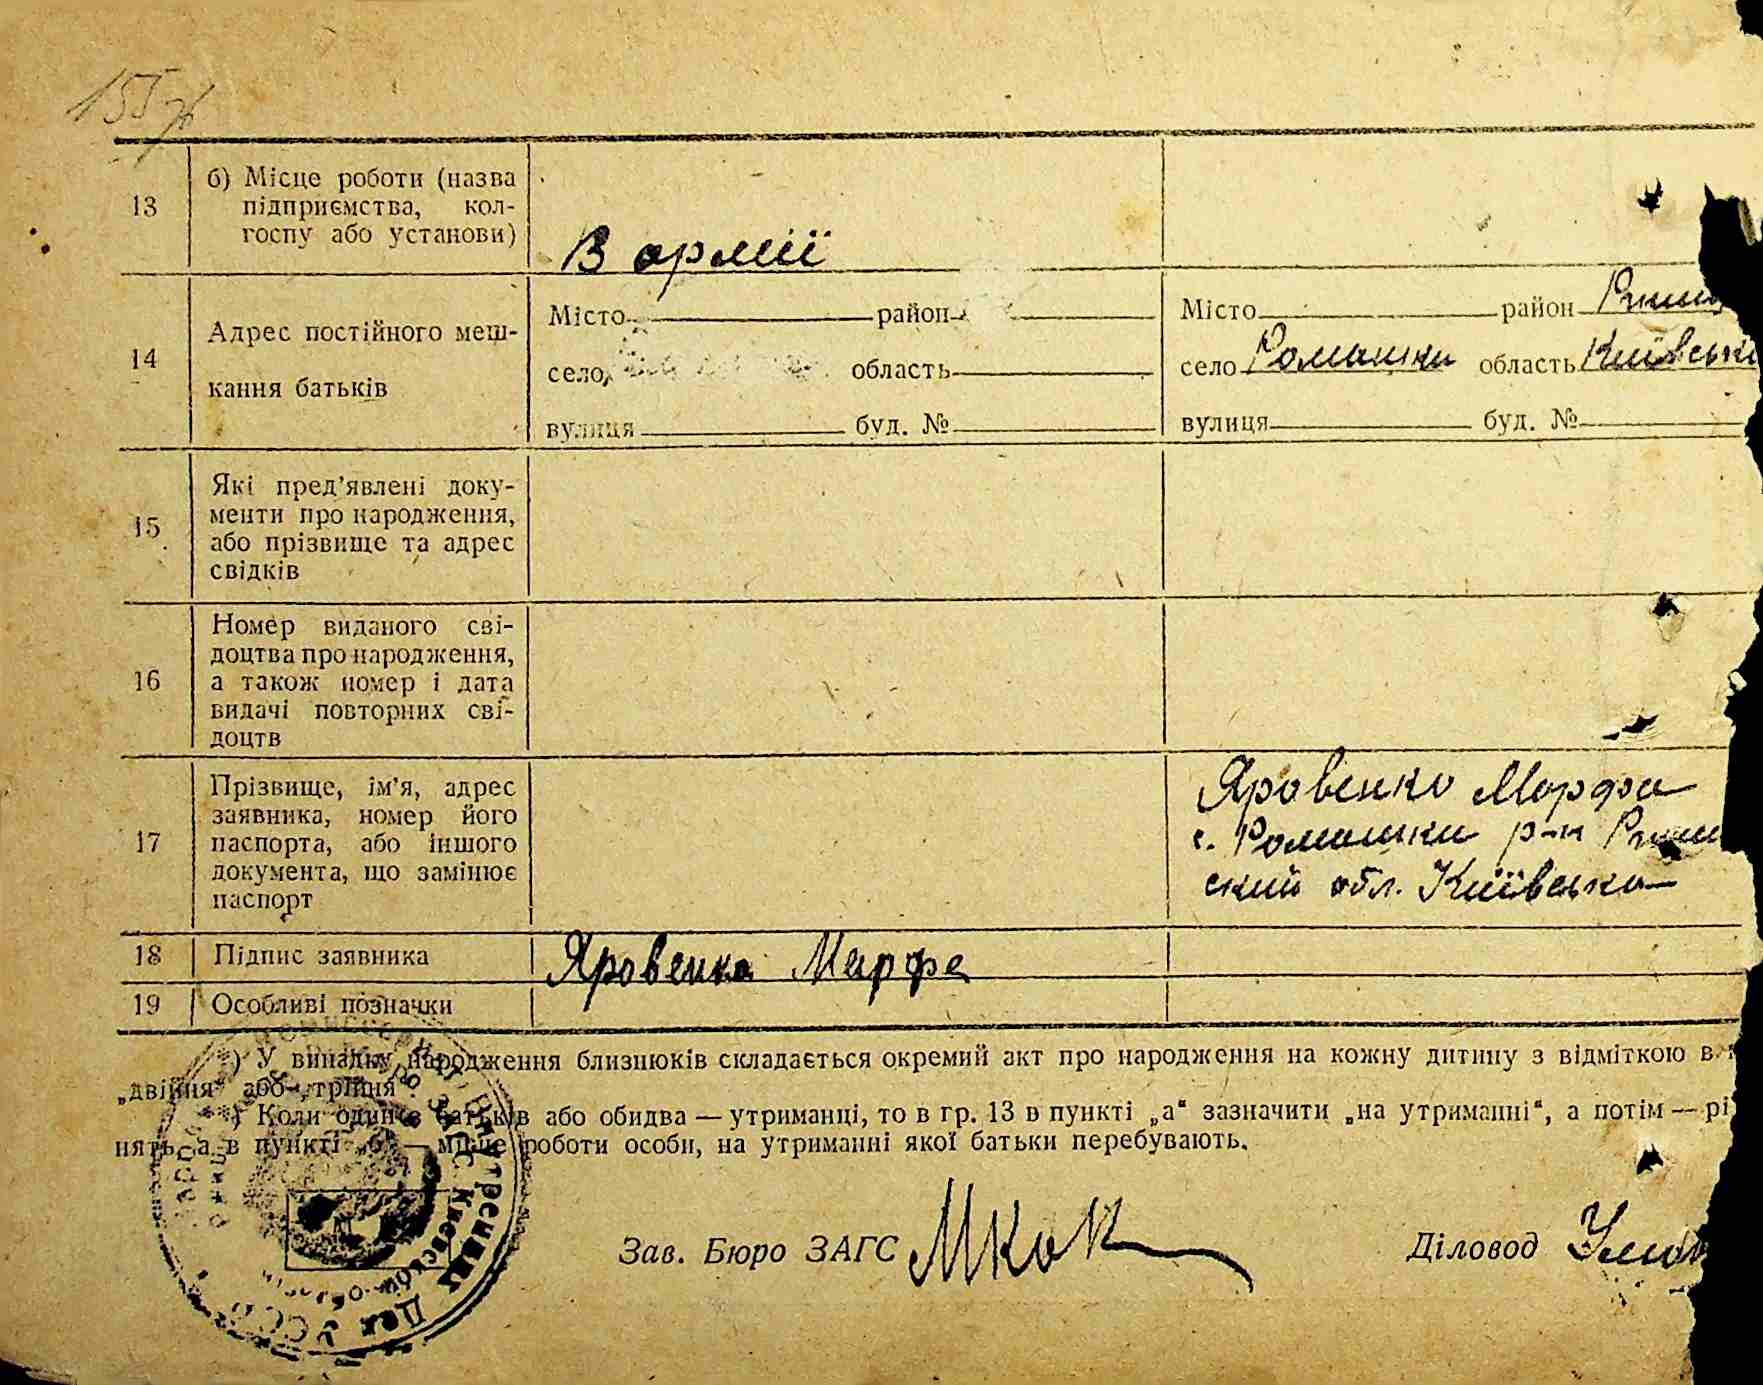 155
13
б) Місце роботи (назва
підприємства, кол-
госпу або установи)
В армії
14
Адрес постійного меш-
кання батьків
Місто район
село область
вулиця буд. №
Місто район
село Ромашки область Київськ
вулиця буд. №
15
Які пред'явлені доку-
менти про народження,
або прізвище та адрес
свідків
16
Номер виданого сві-
доцтва про народження,
а також номер і дата
видачі повторних сві-
доцтв
17
Прізвище, ім'я, адрес
заявника, номер його
паспорта, або іншого
документа, що замінює
паспорт
Яровенко Марфа
с. Ромашки р-н
ский обл. Київська
18
Підпис заявника
Яровенко Марфа
19
Особливі позначки
*) У випадку народження близнюків складається окремий акт про народження на кожну дитину з відміткою в
„двійня" або „трійня".
**) Коли один з батьків або обидва — утриманці, то в гр. 13 в пункті „а" зазначити „на утриманні", а потім — рі
нять, а в пункті „б" — місце роботи особи, на утриманні якої батьки перебувають.
Зав. Бюро ЗАГС
Діловод
Внутренних Дел УССР
Киевской области